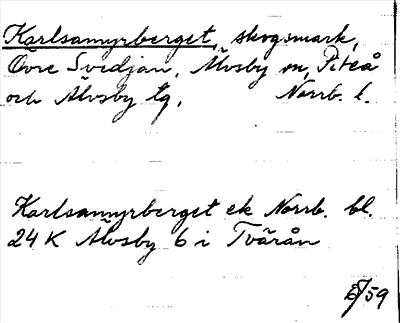 Karlsamyrberget, skogsmark,
Övre Svedjan, Älvsby sn, Piteå
och Älvsby tg, Norrb. l.
Karlsamyrberget ek Norrb. bl.
24 K Älvsby 6 i Tvärån
/59